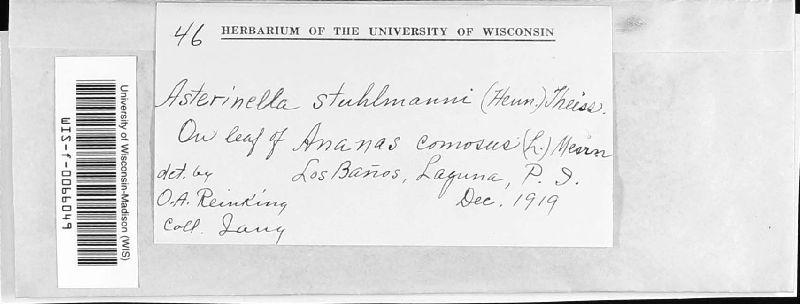 46 HERBARIUM OF THE UNIVERSITY OF WISCONSIN
Asterinella stuhlmanni (Henn.) Theiss.
On leaf of Ananas comosus (L.) Merrn
det. by Los Baños, Laguna, P. I.
O.A. Reinking Dec. 1919
Coll.
University of Wisconsin-Madison (WIS)
WIS-f-0069049